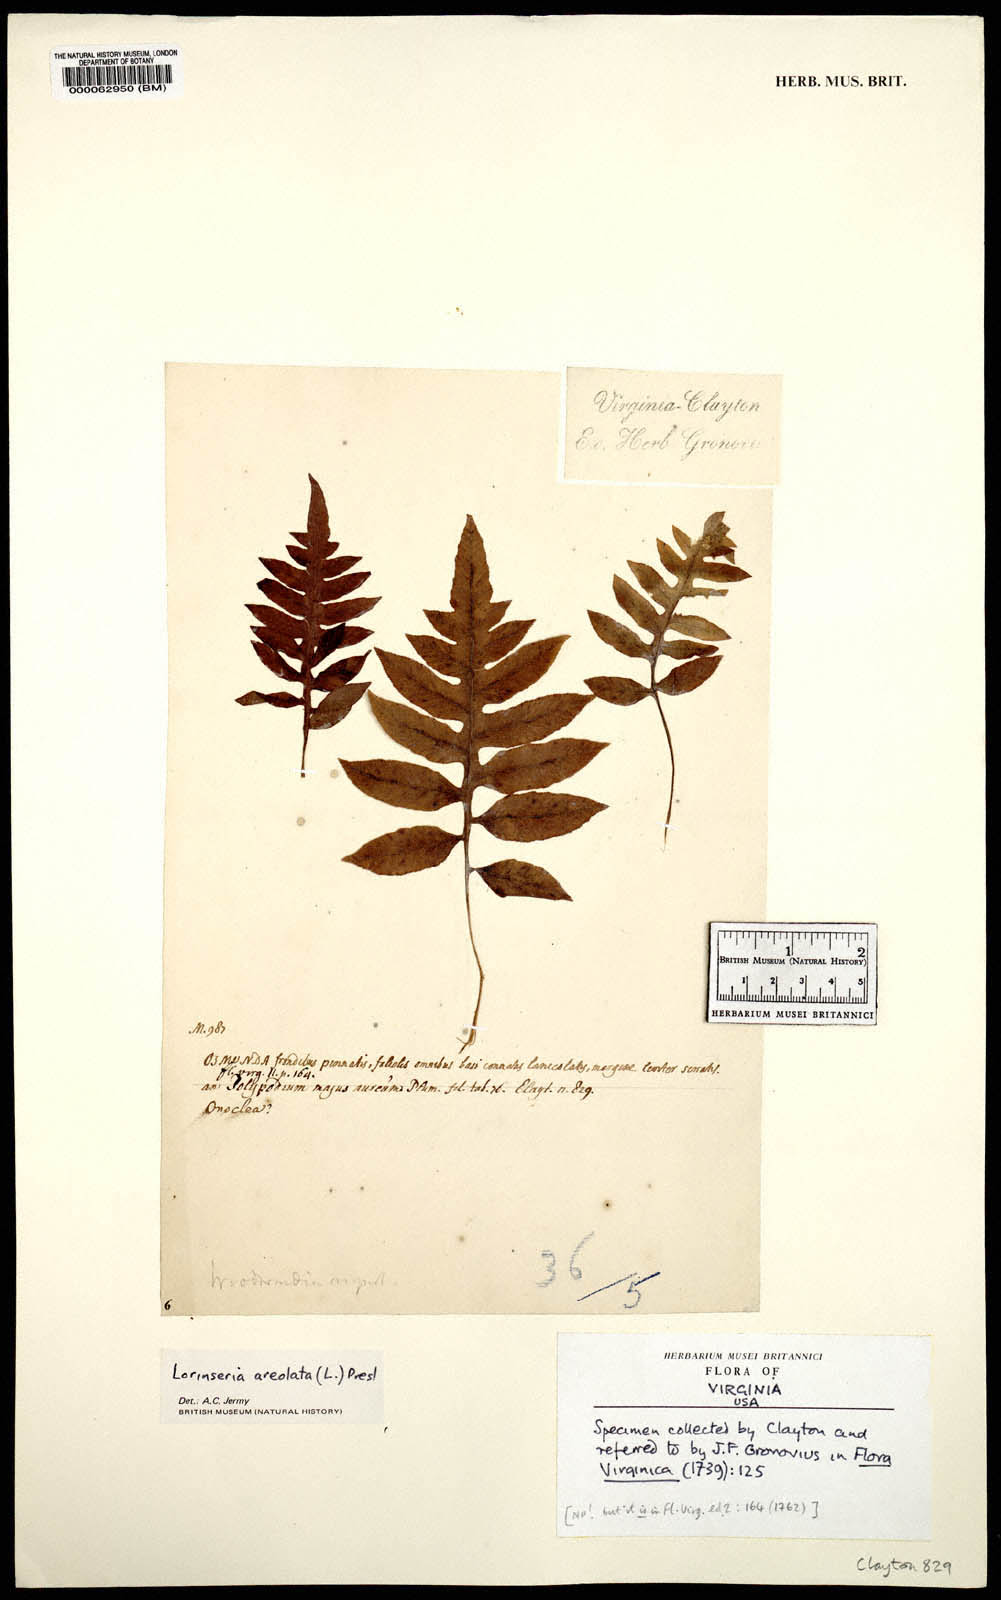 THE NATURAL HISTORY MUSEUM, LONDON
DEPARTMENT OF BOTANY
000062950 (BM)
HERB. MUS. BRIT.
Virginia-Clayton
Ex. Herb Gronov
1 2
BRITISH MUSEUM (NATURAL HISTORY)
1 2 3 4 5
HERBARIUM MUSEI BRITANNICI
M. 983
OSMUNDA frondibus pinnatis, foliolis omnibus basi connatis lanceolatis, margine leviter serratis.
fl. virg. II. p. 164.
an Polypodium majus aureum Plum. fil. tab. 76. Clayt. n. 829.
Onoclea?
36
/5
6
Lorinseria areolata (L.) Presl
Det.: A.C. Jermy
BRITISH MUSEUM (NATURAL HISTORY)
HERBARIUM MUSEI BRITANNICI
FLORA OF
VIRGINIA
USA
Specimen collected by Clayton and
referred to by J.F. Gronovius in Flora
Virginica (1739): 125
[NO! but it is in Fl. Virg. ed. 2 : 164 (1762)]
Clayton 829